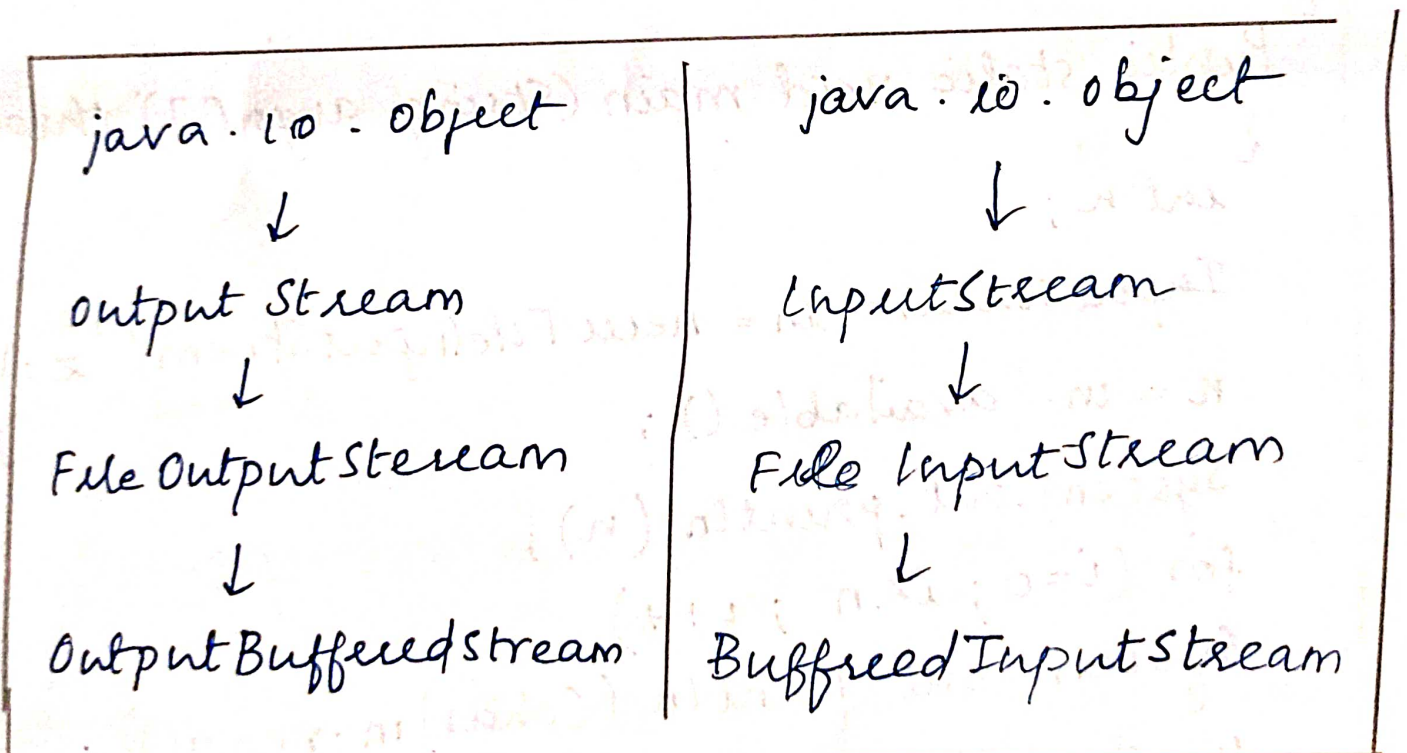 java.io.object
↓
Output Stream
↓
File OutputSteream
↓
OutputBufferedStream
java.io.object
↓
InputStream
↓
File InputStream
↓
BuffreedInputStream